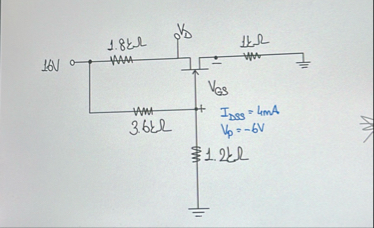 1.8kΩ
V_D
1kΩ
16V
V_GS
-
+
3.6kΩ
I_DSS = 4mA
V_p = -6V
1.2kΩ